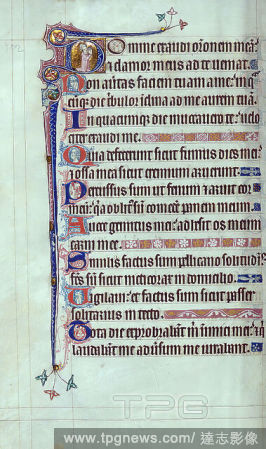 Domine exaudi orōnem meā:
⁊ clamor meus ad te veniat.
Non au͛tas faciem tuam a me: in q̄
cūq; die tribulor īclina ad me aurem tuā.
In quacumque die inuocauero te: uelo
citer exaudi me.
Quia defecerunt sicut fumus dies mei:
⁊ ossa mea sicut cremium aruerunt.
Percussus sum ut fenum ⁊ aruit cor
meū: q̄a oblit᷒ sū comedē panem meum.
A uoce gemitus mei: adhesit os meum
carni mee.
Similis factus sum pellicano solitudīs:
fcūs sū sicut nicticorax in domicilio.
Uigilaui: et factus sum sicut passer
solitarius in tecto.
Tota die exprobrabāt m̄ inimici mei: ⁊ q̄
laudabant me aduersum me iurabant.
TPG
www.tpgnews.com / 達志影像